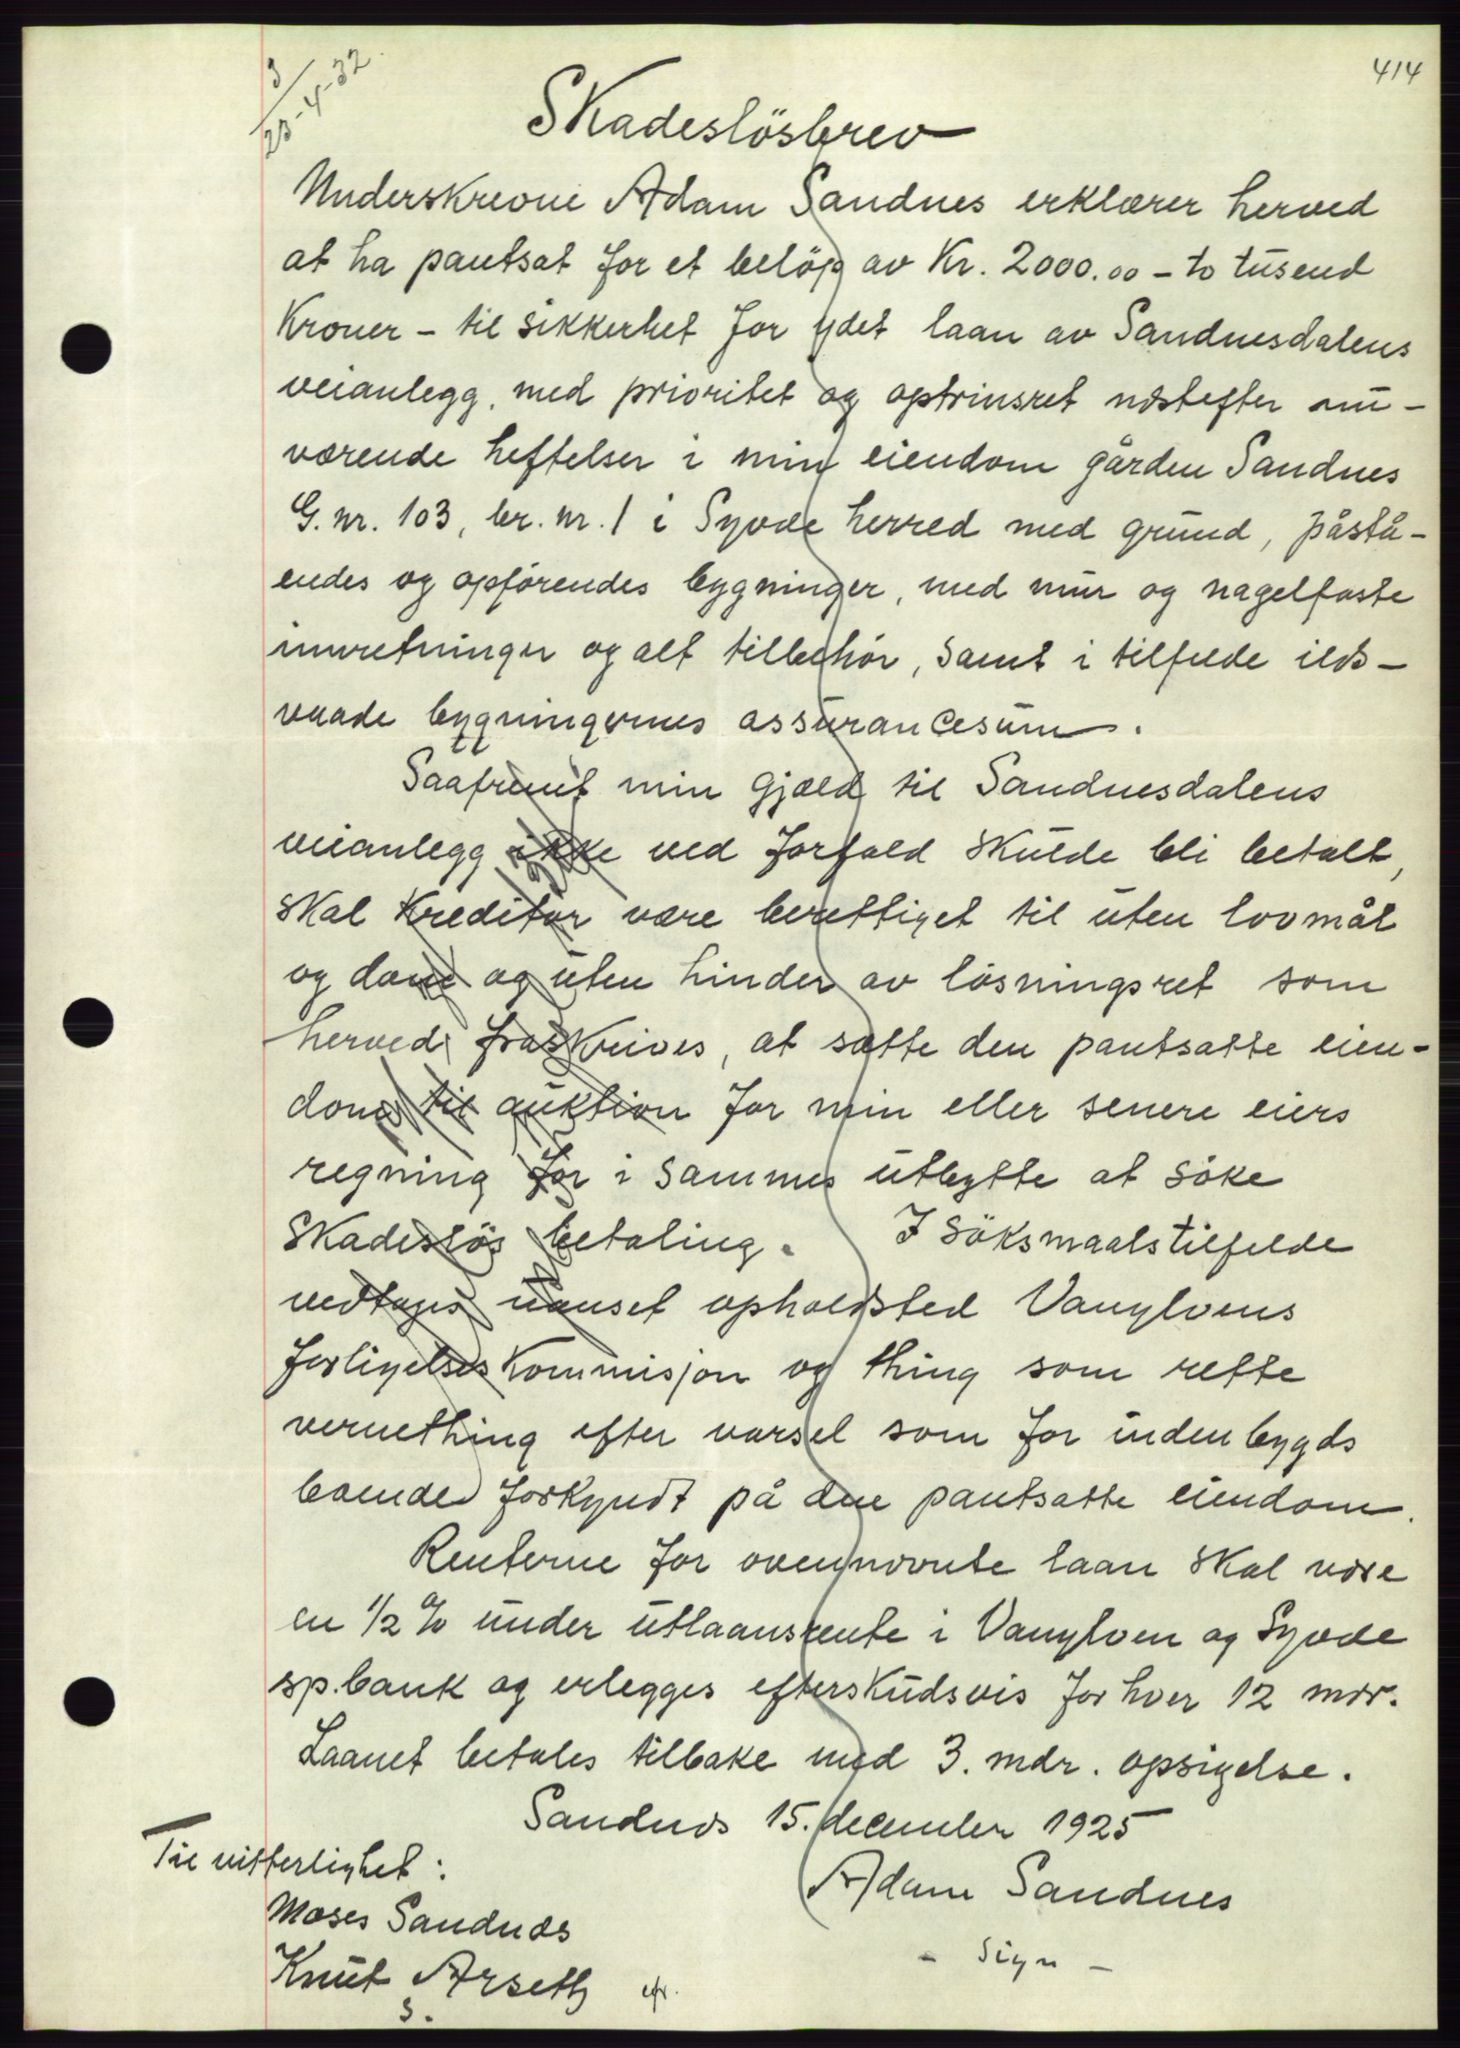 414
3/23-4-32
Skadeslösbrev
Underskrevne Adam Sandnes erklærer herved
at ha pantsat for et belöp av Kr. 2000.00 - to tusend
Kroner - til sikkerhet for ydet laan av Sandnesdalens
veianlegg, med prioritet og optrinsret næstefter nu-
værende heftelser i min eiendom gården Sandnes
G. nr. 103, br. nr. 1 i Syvde herred med grund, påstå-
endes og opförendes bygninger, med mur og nagelfaste
innretninger og alt tilbehör, samt i tilfælde ilds-
vaade bygningernes assurancesum.
Saafremt min gjæld til Sandnesdalens
veianlegg ikke ved forfald skulde bli betalt,
skal kreditor være berettiget til uten lovmål
og dom og uten hinder av lösningsret som
herved fraskrives, at sætte den pantsatte eien-
dom til auktion for min eller senere eiers
regning for i sammes utbytte at söke
skadeslös betaling. I söksmaalstilfelde
vedtages uanset opholdsted Vanylvens
forligelseskommisjon og thing som rette
vernething efter varsel som for indenbygds
boende forkyndt på den pantsatte eiendom.
Renterne for ovennevnte laan skal være
en 1/2 % under utlaansrente i Vanylven og Syvde
sp.bank og erlegges efterskudsvis for hver 12 mdr.
Laanet betales tilbake med 3. mdr. opsigelse.
Sandnes 15. december 1925
Til vitterlighet:
Adam Sandnes
Moses Sandnes
- sign -
Knut Arseth
s.